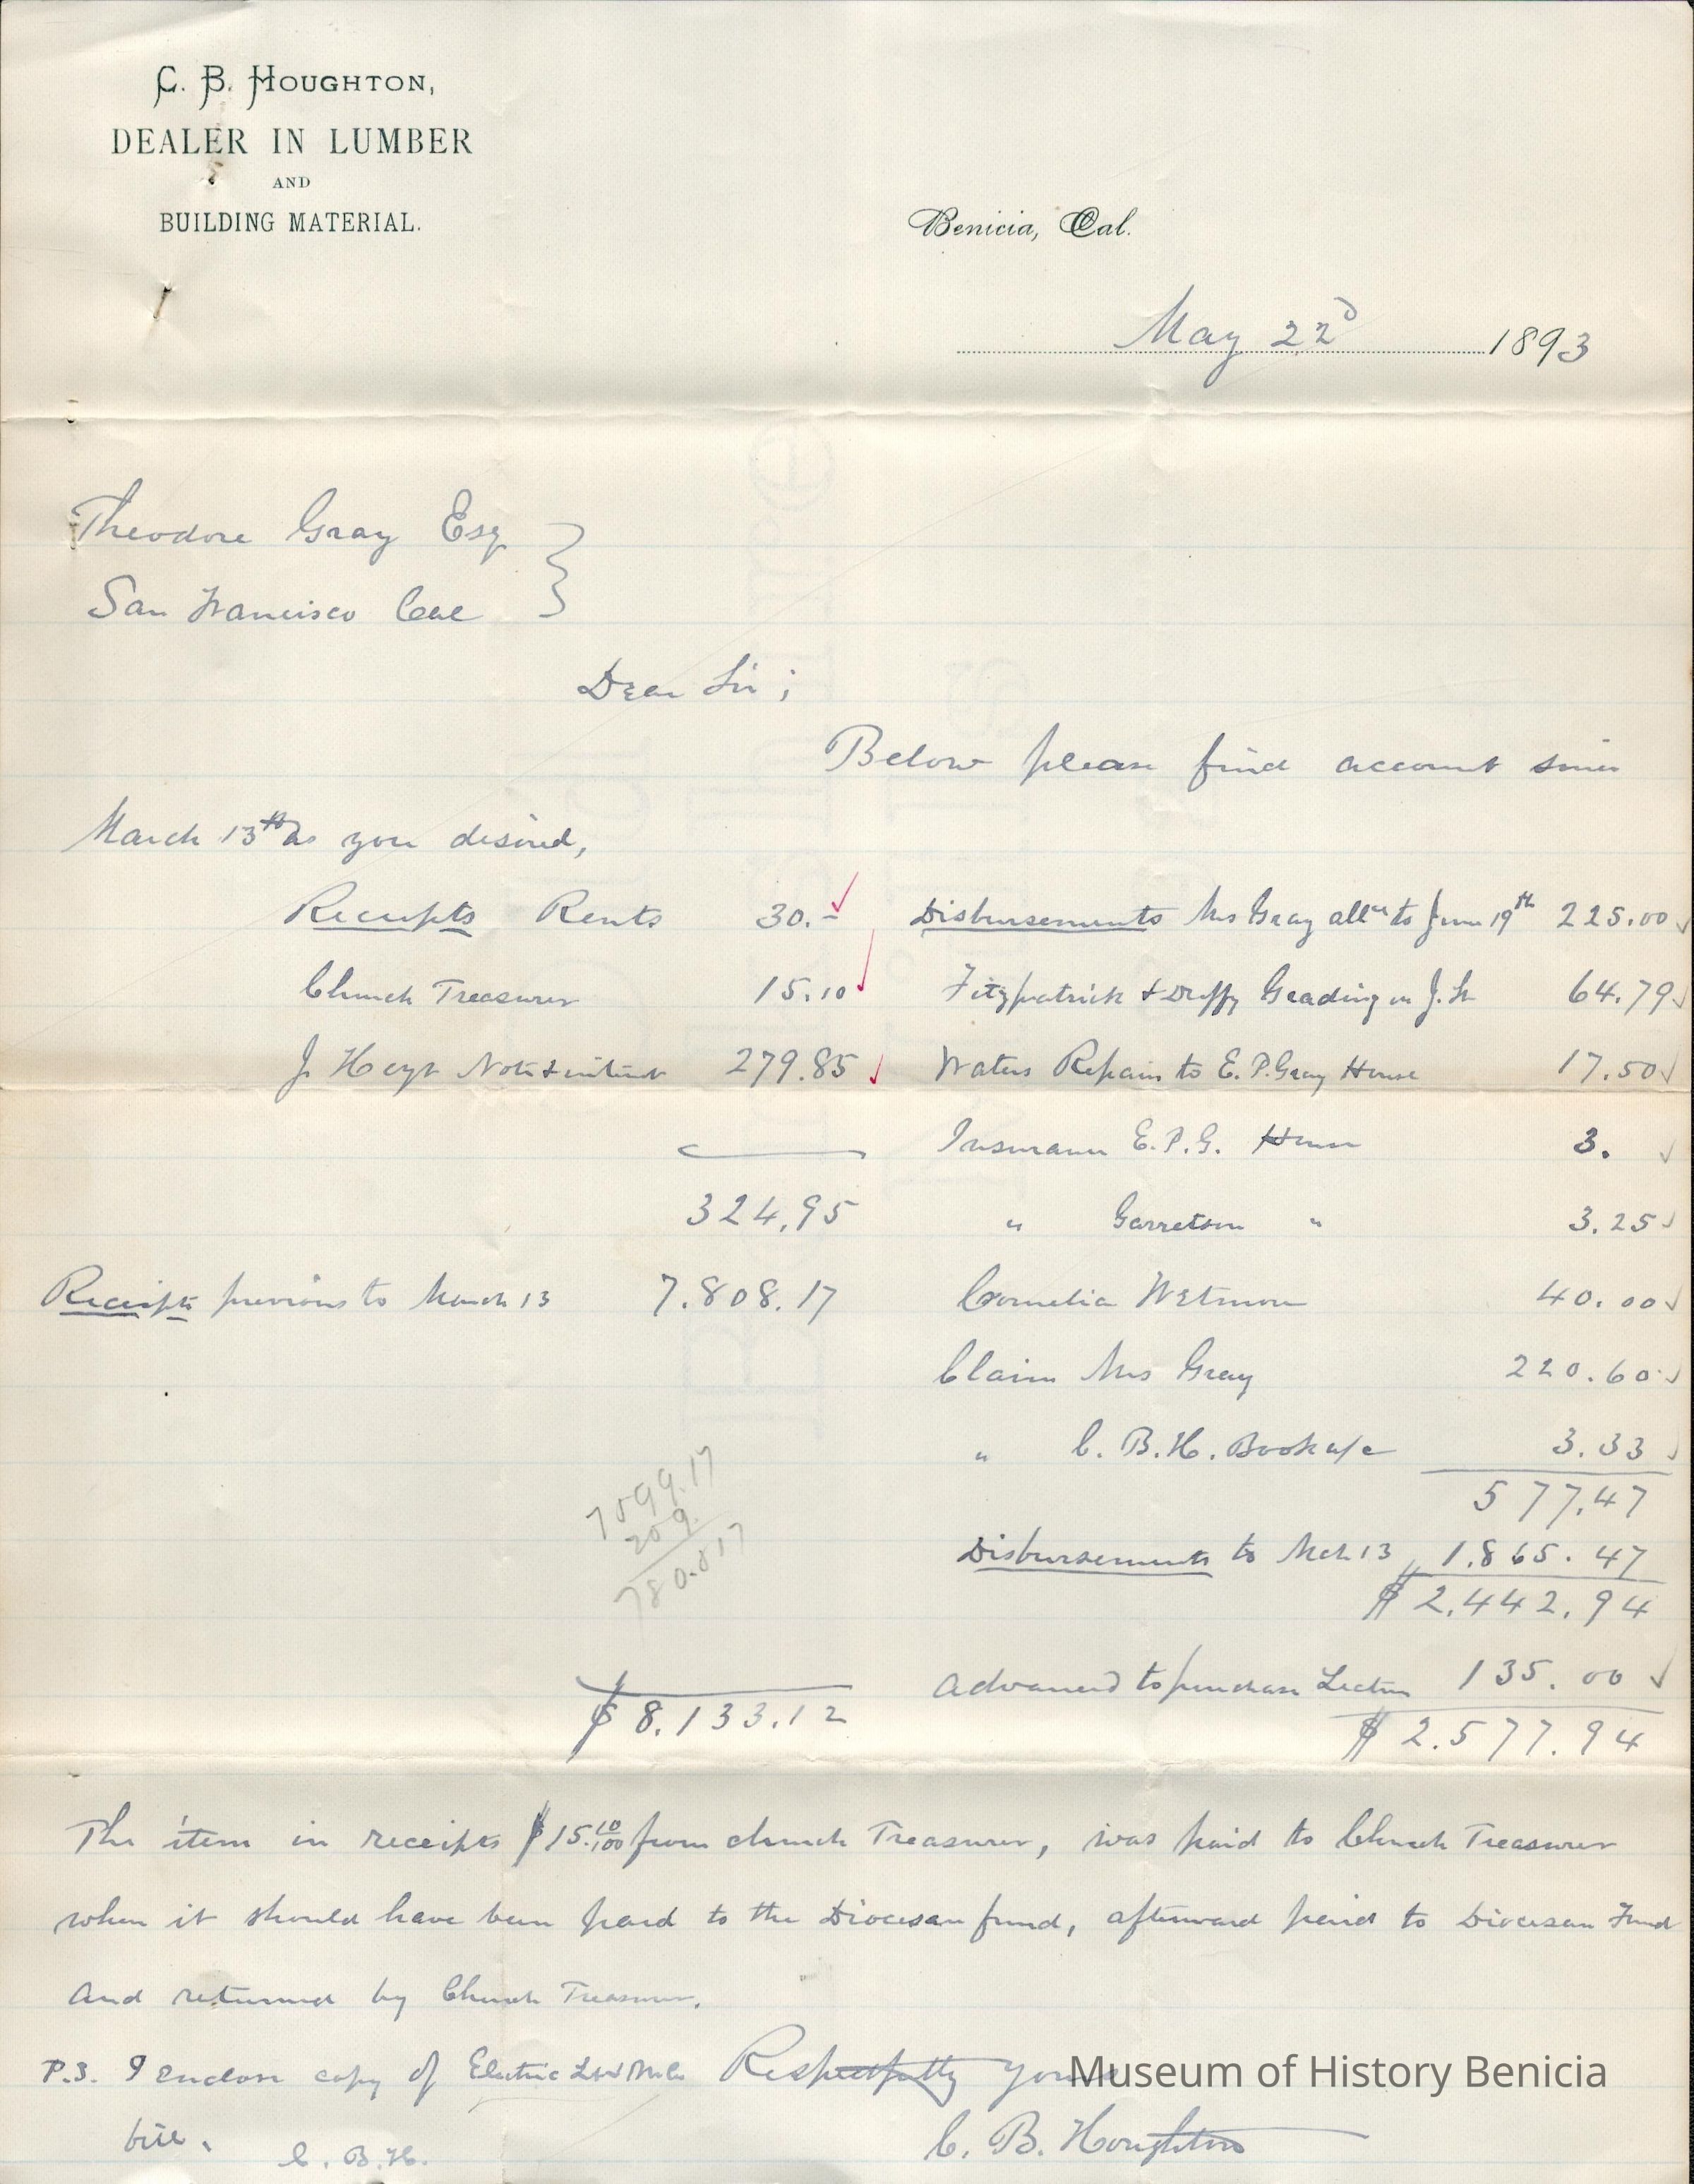 C. B. HOUGHTON,
DEALER IN LUMBER
AND
BUILDING MATERIAL.
Benicia, Cal.
May 22d 1893
Theodore Gray Esq
San Francisco Cal
Dear Sir;
Below please find account since
March 13th as you desired,
Receipts Rents 30.- Disbursements Mrs Gray allce to June 19th 225.00
Church Treasurer 15.10 Fitzpatrick & Duffy Grading on J. St 64.79
J Hoyt Note & interest 279.85 Waters Repairs to E. P. Gray House 17.50
Insurance E. P. G. House 3.
324.95 " Garretson " 3.25
Receipts previous to March 13 7.808.17 Cornelia Wetmore 40.00
Claim Mrs Gray 220.60
" C. B. H. Book a/c 3.33
577.47
7599.17
209.
Disbursements to Mch 13 1.865.47
780.817
$ 2.442.94
Advanced to purchase 135.00
$ 8.133.12 $ 2.577.94
The item in receipts $15.10/100 from church Treasurer, was paid to Church Treasurer
when it should have been paid to the Diocesan fund, afterward paid to Diocesan Fund
and returned by Church Treasurer.
P.S. I enclose copy of Electric Respectfully yours
bill. C. B. H. C. B. Houghton
Museum of History Benicia